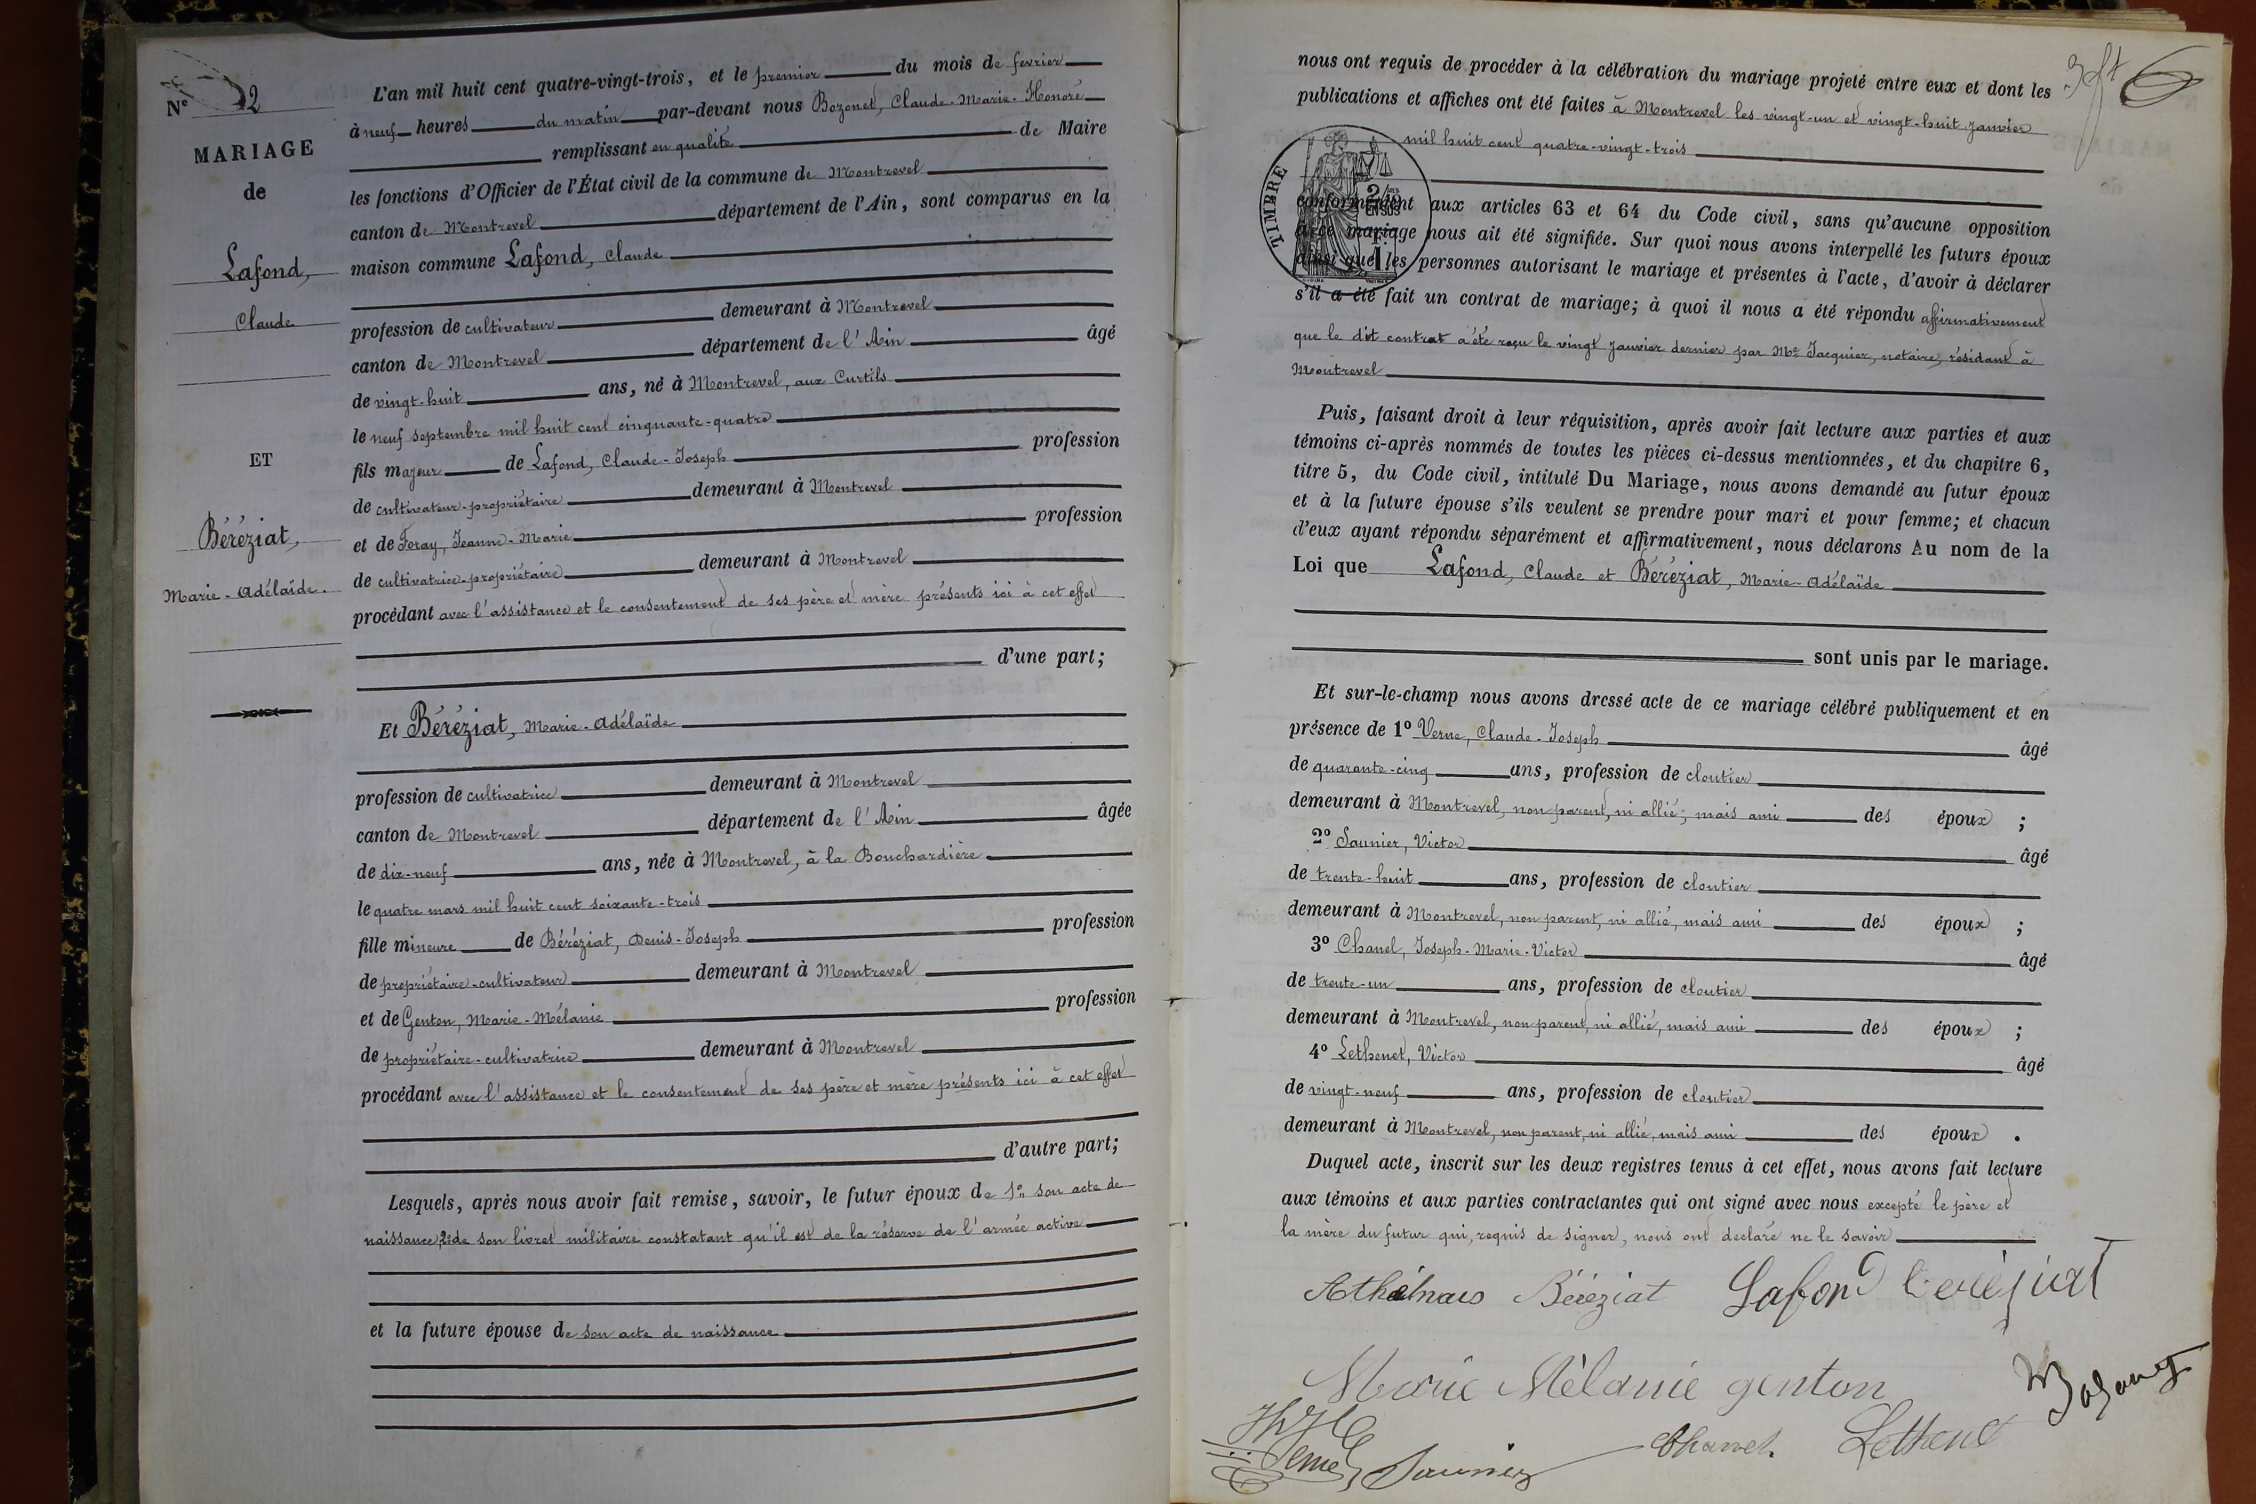 Nº 2
MARIAGE
de
Lafond,
Claude
ET
Béréziat,
Marie-Adélaïde.
L'an mil huit cent quatre-vingt-trois, et le premier du mois de février
à neuf heures du matin par-devant nous Bozonet, Claude-Marie-Honoré
remplissant en qualité de Maire
les fonctions d'Officier de l'État civil de la commune de Montrevel
canton de Montrevel département de l'Ain, sont comparus en la
maison commune Lafond, Claude
profession de cultivateur demeurant à Montrevel
canton de Montrevel département de l'Ain âgé
de vingt-huit ans, né à Montrevel, aux Curtils
le neuf septembre mil huit cent cinquante-quatre
fils majeur de Lafond, Claude-Joseph profession
de cultivateur-propriétaire demeurant à Montrevel
et de Feray, Jeanne-Marie profession
de cultivatrice-propriétaire demeurant à Montrevel
procédant avec l'assistance et le consentement de ses père et mère présents ici à cet effet
d'une part;
Et Béréziat, Marie-Adélaïde
profession de cultivatrice demeurant à Montrevel
canton de Montrevel département de l'Ain âgée
de dix-neuf ans, née à Montrevel, à la Bouchardière
le quatre mars mil huit cent soixante-trois
fille mineure de Béréziat, Denis-Joseph profession
de propriétaire-cultivateur demeurant à Montrevel
et de Genton, Marie-Mélanie profession
de propriétaire-cultivatrice demeurant à Montrevel
procédant avec l'assistance et le consentement de ses père et mère présents ici à cet effet
d'autre part;
Lesquels, après nous avoir fait remise, savoir, le futur époux de 1º son acte de
naissance, 2º de son livret militaire constatant qu'il est de la réserve de l'armée active
et la future épouse de son acte de naissance
nous ont requis de procéder à la célébration du mariage projeté entre eux et dont les
publications et affiches ont été faites à Montrevel les vingt-un et vingt-huit janvier
mil huit cent quatre-vingt-trois
TIMBRE
2/10 EN SUS
conformément aux articles 63 et 64 du Code civil, sans qu'aucune opposition
à ce mariage nous ait été signifiée. Sur quoi nous avons interpellé les futurs époux
ainsi que les personnes autorisant le mariage et présentes à l'acte, d'avoir à déclarer
s'il a été fait un contrat de mariage; à quoi il nous a été répondu affirmativement
que le dit contrat a été reçu le vingt janvier dernier par Me Jacquier, notaire, résidant à
Montrevel
Puis, faisant droit à leur réquisition, après avoir fait lecture aux parties et aux
témoins ci-après nommés de toutes les pièces ci-dessus mentionnées, et du chapitre 6,
titre 5, du Code civil, intitulé Du Mariage, nous avons demandé au futur époux
et à la future épouse s'ils veulent se prendre pour mari et pour femme; et chacun
d'eux ayant répondu séparément et affirmativement, nous déclarons Au nom de la
Loi que Lafond, Claude et Béréziat, Marie-Adélaïde
sont unis par le mariage.
Et sur-le-champ nous avons dressé acte de ce mariage célébré publiquement et en
présence de 1º Verne, Claude-Joseph âgé
de quarante-cinq ans, profession de cloutier
demeurant à Montrevel, non parent, ni allié; mais ami des époux ;
2º Saunier, Victor âgé
de trente-huit ans, profession de cloutier
demeurant à Montrevel, non parent, ni allié, mais ami des époux ;
3º Chanel, Joseph-Marie-Victor âgé
de trente-un ans, profession de cloutier
demeurant à Montrevel, non parent, ni allié, mais ami des époux ;
4º Lethenet, Victor âgé
de vingt-neuf ans, profession de cloutier
demeurant à Montrevel, non parent, ni allié, mais ami des époux .
Duquel acte, inscrit sur les deux registres tenus à cet effet, nous avons fait lecture
aux témoins et aux parties contractantes qui ont signé avec nous excepté le père et
la mère du futur qui, requis de signer, nous ont déclaré ne le savoir
Béréziat Lafond Bereziat
Marie Mélanie genton
Bozonet
Verne Saunier Chanel Lethenet